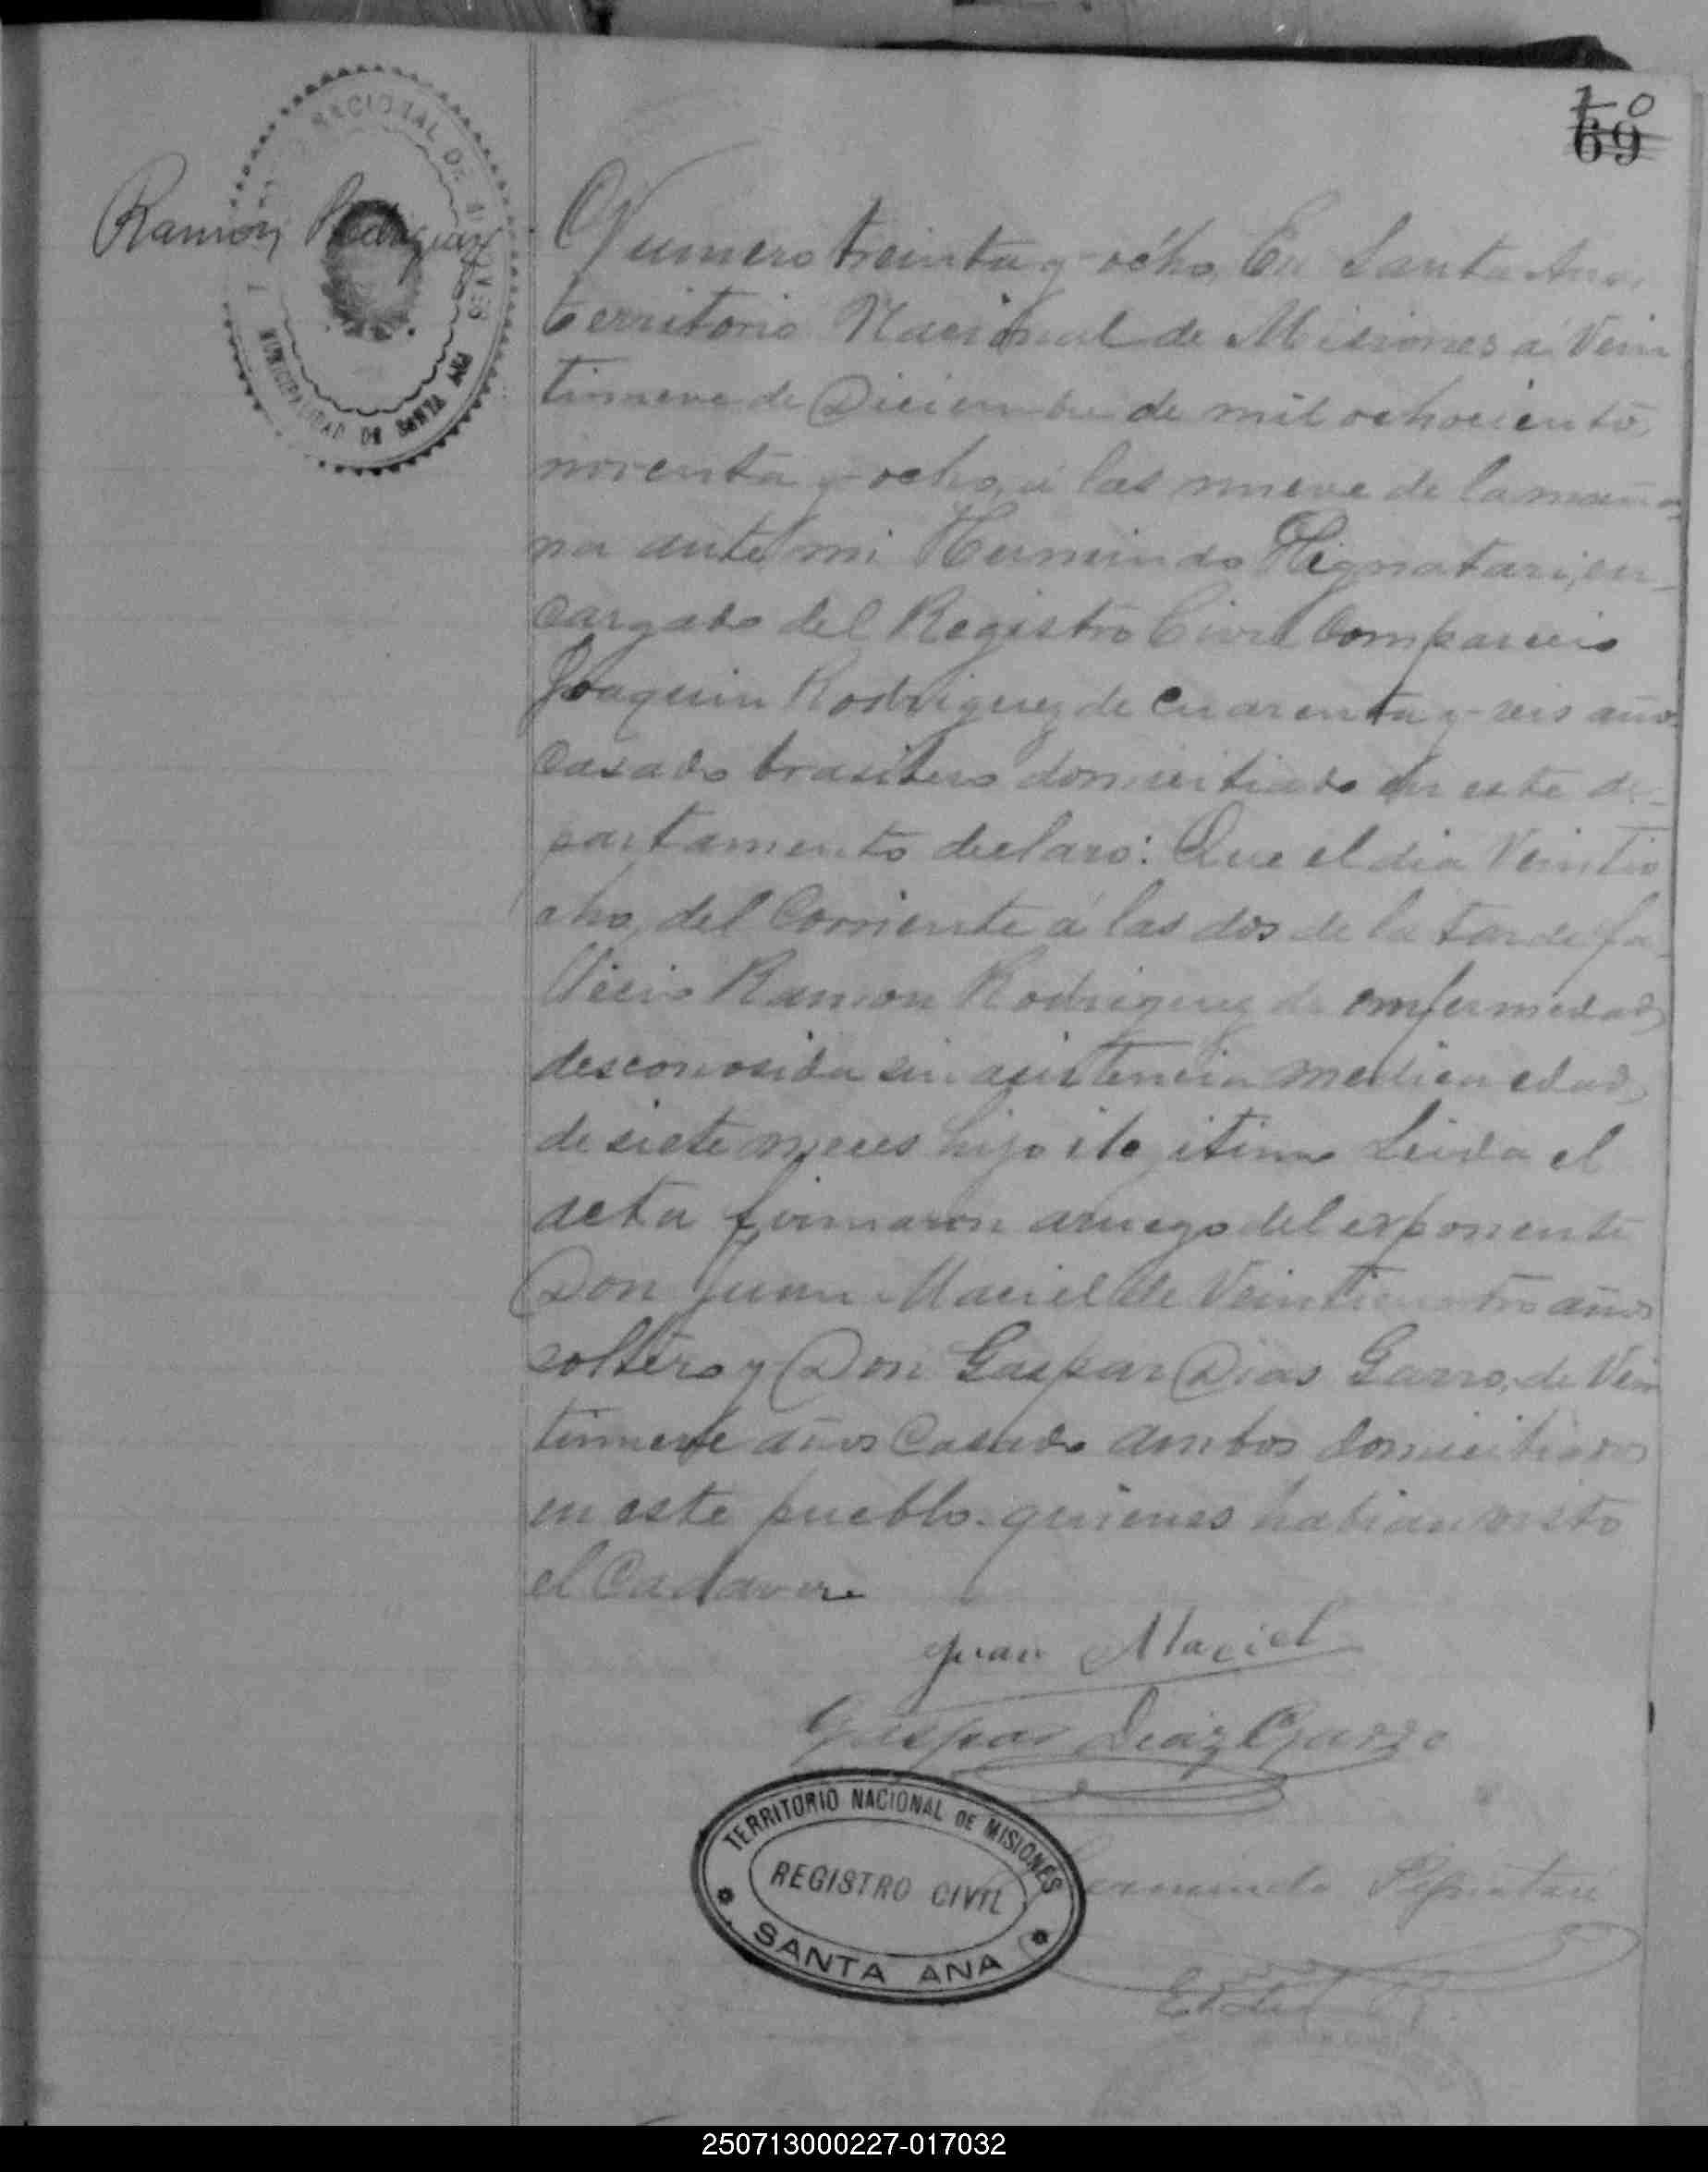 10
69
Ramon Rodriguez
NACIONAL DE MISIONES
MUNICIPALIDAD DE SANTA ANA
Numero treinta y ocho, En Santa Ana,
territorio Nacional de Misiones á Vein
tinueve de Diciembre de mil ochocientos
noventa y ocho, á las nueve de la maña
na ante mi Hermindo Pignatari, en_
cargado del Registro Civil Comparecio
Joaquin Rodriguez de cuarenta y seis años
casado brasilero domiciliado en este de_
partamento declaro: Que el dia Veintio
cho, del Corriente á las dos de la tarde fa_
llecio Ramon Rodriguez de enfermedad
desconosida sin asistencia medica edad,
de siete meses hijo ilegitimo Leida el
acta firmaron aruego del exponente
Don Juan Maciel de Veinticuatro años
soltero y Don Gaspar Dias Garro, de Vein
tinueve años Casado ambos domiciliados
en este pueblo. quienes habian visto
el Cadaver
Juan Maciel
Gaspar Diaz Garro
Hermindo Pignatari
TERRITORIO NACIONAL DE MISIONES
REGISTRO CIVIL
SANTA ANA
250713000227-017032